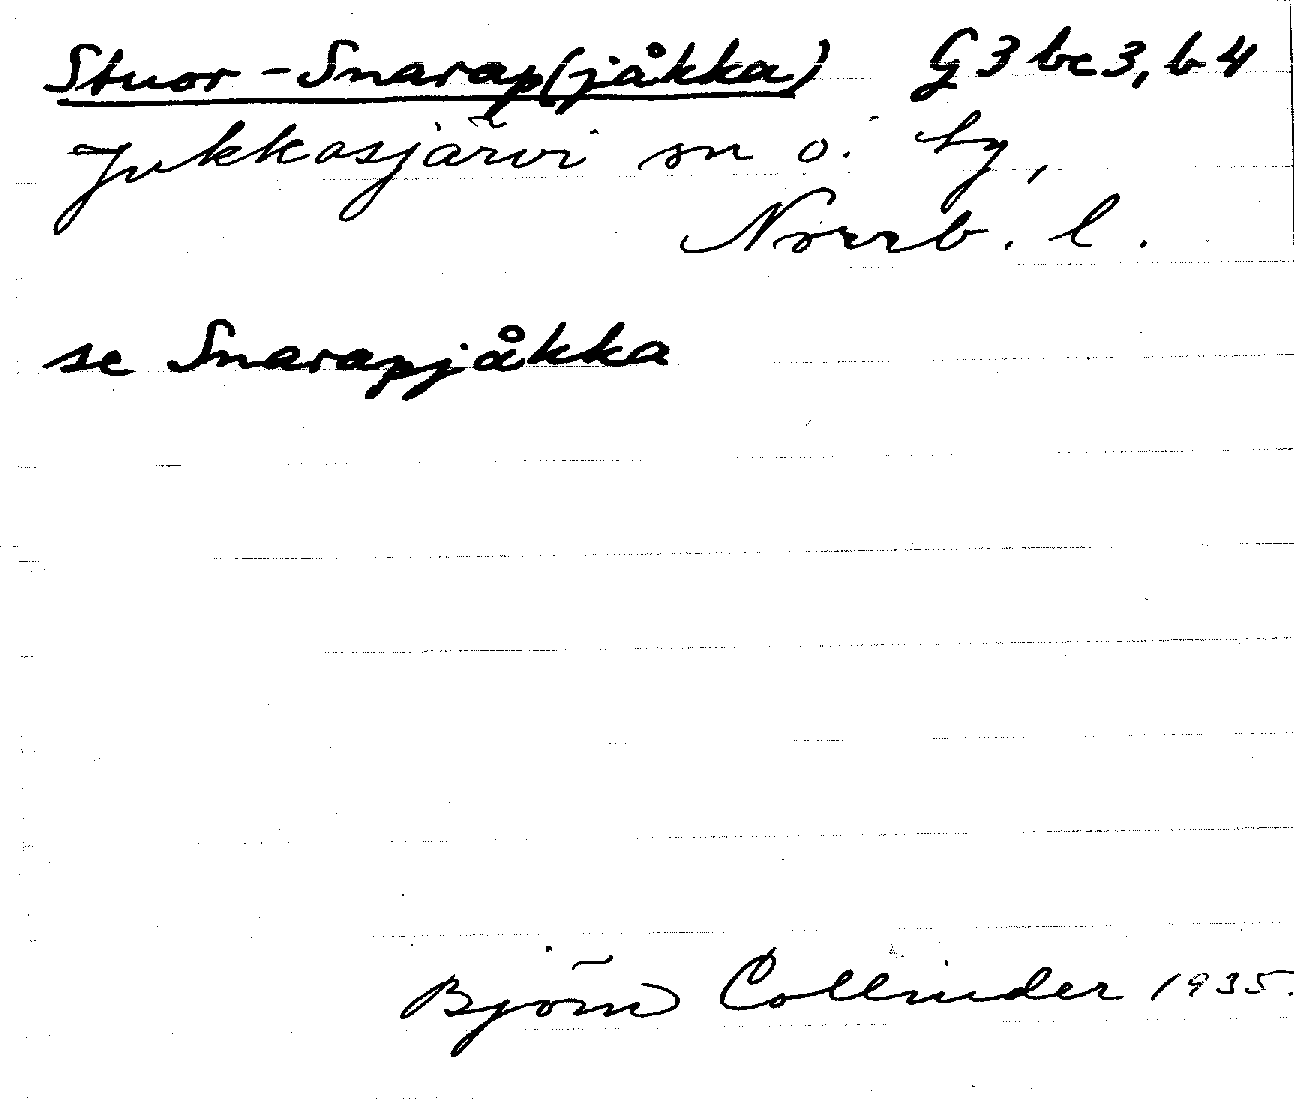 Stuor-Snarap(jåkka) G3bc3, b4
Jukkasjärvi sn o. by,
Norrb. l.
se Snarapjåkka
Björn Collinder 1935.